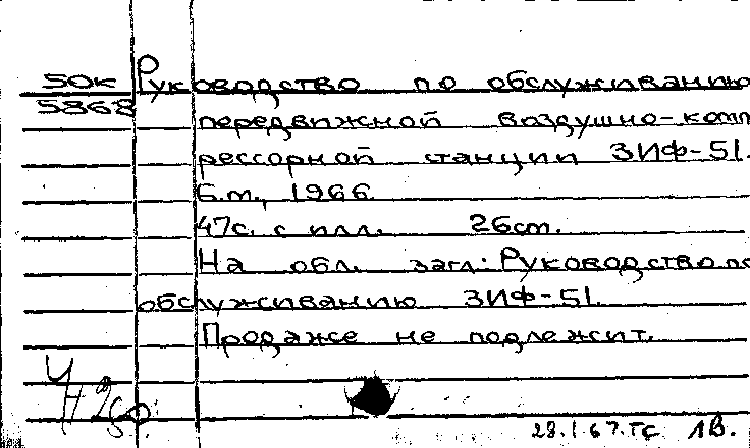 50к Руководство по обслуживанию
5868
передвижной воздушно-комп
рессорной станции ЗИФ-51.
Б.м., 1966.
47с. с илл. 26см.
На обл. загл.: Руководство по
обслуживанию ЗИФ-51.
Продаже не подлежит.
28.1.67.тс ЛВ.